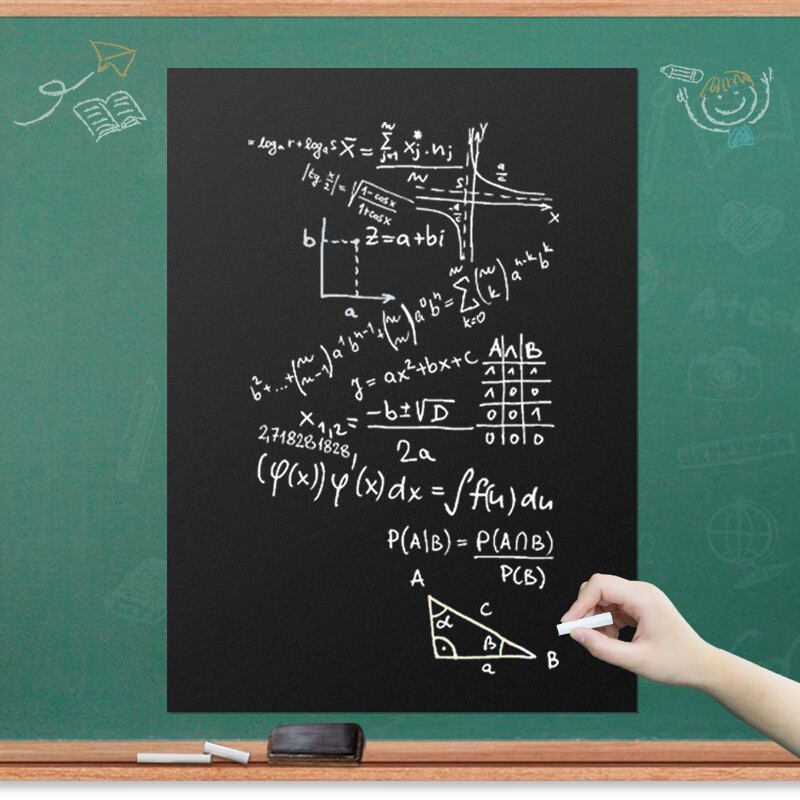 = logₐ r + logₐ s
X̄ = ∑ⁿⱼ₌₁ xⱼ* · nⱼ / n
y
a/c
s
-a/c
x
|tg x/2| = √(1-cosx / 1+cosx)
b
z = a + bi
a
b² + ... + (n n-1) a¹ bⁿ⁻¹ + (n n) a⁰ bⁿ = ∑ⁿₖ₌₀ (n k) aⁿ⁻ᵏ bᵏ
y = ax² + bx + c
A ∧ B
1 1 1
1 0 0
0 0 1
0 0 0
x₁,₂ = -b ± √D / 2a
2,718281828,
(φ(x)) φ'(x) dx = ∫ f(u) du
P(A|B) = P(A∩B) / P(B)
A
α
c
β
B
a
A+B=